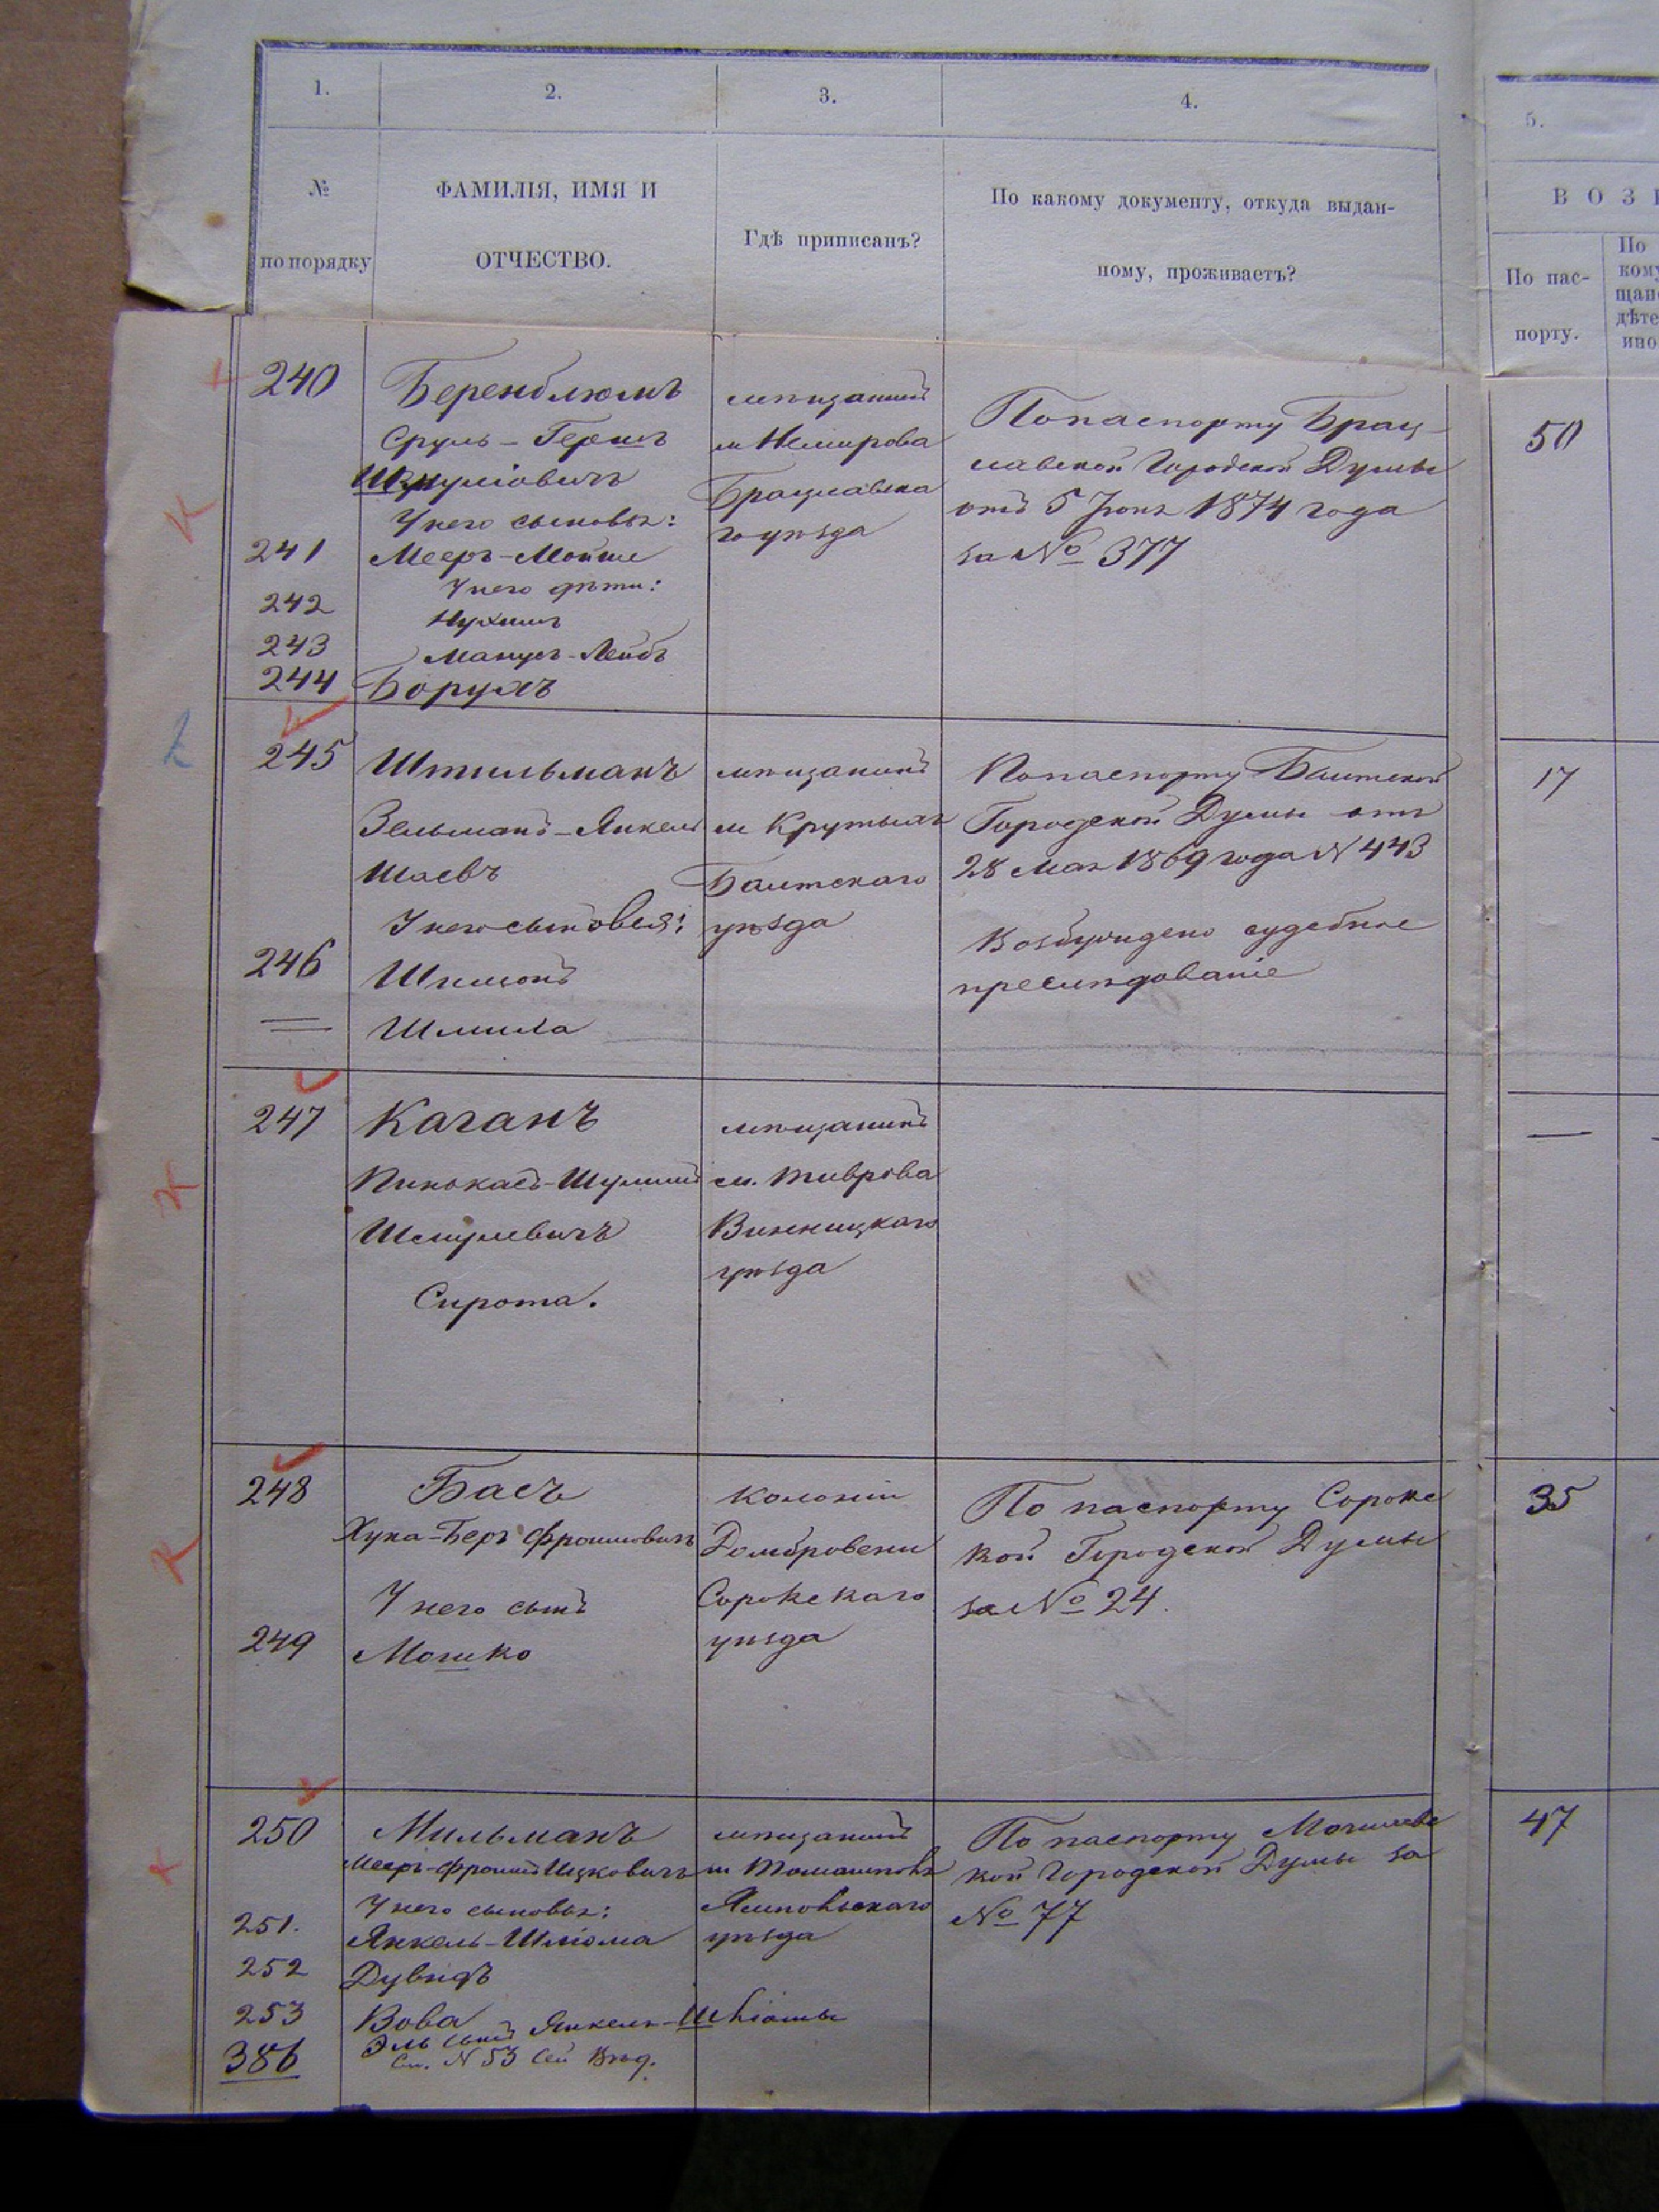 1.
2.
3.
4.
5.
№
по порядку
ФАМИЛІЯ, ИМЯ И
ОТЧЕСТВО.
Гдѣ приписанъ?
По какому документу, откуда выдан-
ному, проживаетъ?
В О З
По пас-
порту.
По
кому
щан
дѣте
ино
240
Беренблюмъ
Сруль-Гершъ
У него сыновья:
241
Мееръ-Мойше
У него дѣти:
242
Нухимъ
243
Манусъ-Лейбъ
244
Борухъ
мѣщанинъ
м Немирова
Брацлавска
го уѣзда
По паспорту Брац-
лавской Городской Думы
отъ 5 Іюня 1874 года
за № 377
50
245
Штильманъ
Зельманъ-Янкель
Шаевъ
У него сыновья:
246
Шимонъ
Шмила
мѣщанинъ
м Крутыхъ
Балтскаго
уѣзда
По паспорту Балтской
Городской Думы отъ
28 Мая 1869 года N 443
Возбуждено судебное
преслѣдованіе
17
247
Каганъ
Пинкасъ-Шулимъ
Шмулевичъ
Сирота.
мѣщанинъ
м. Тиврова
Винницкаго
уѣзда
248
Басъ
Хуна-Беръ Фроимовичъ
У него сынъ
249
Мошко
Колоніи
Домбровени
Сорокскаго
уѣзда
По паспорту Сорокс
кой Городской Думы
за № 24.
35
250
Мильманъ
Мееръ-Фроимъ Ицковичъ
У него сыновья:
251.
Янкель-Шліома
252
Дувидъ
253
Вова
386
Эль сынъ Янкель-Шліомы
См. N 53 сей Вѣд.
мѣщанинъ
м Томашполя
Ямпольскаго
уѣзда
По паспорту Могилевс
кой Городской Думы за
№ 77
47